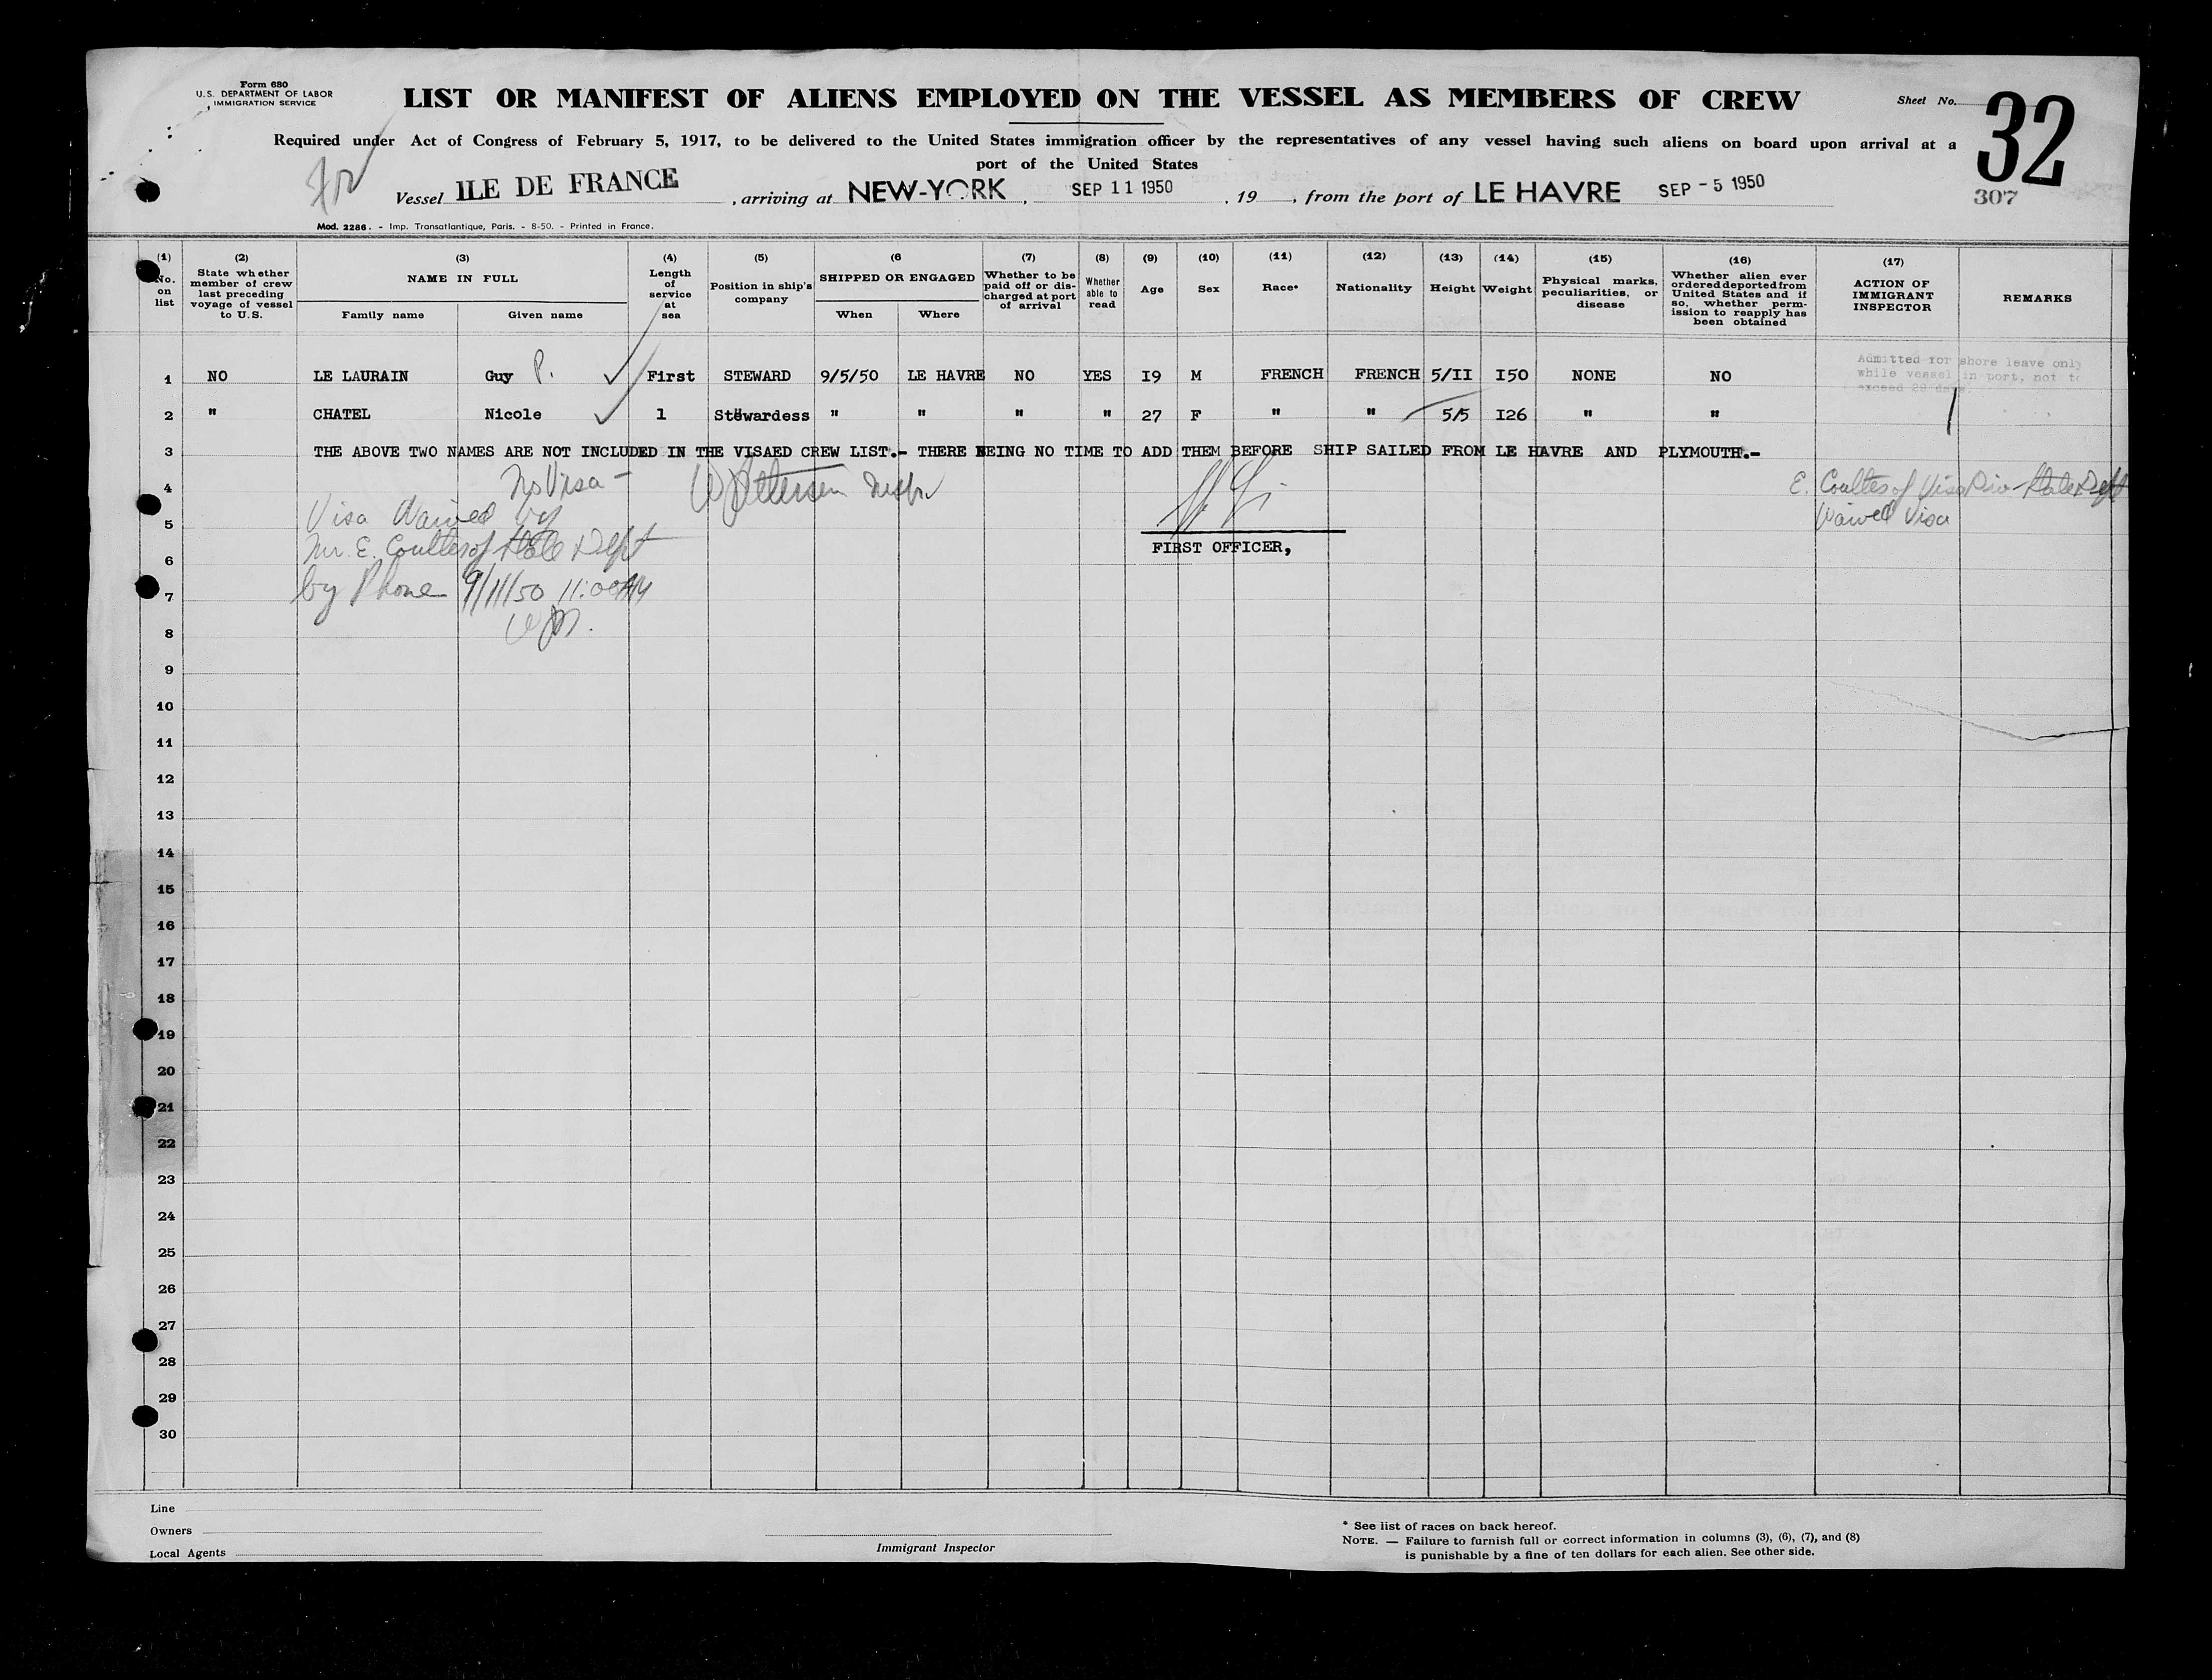 Form 680
U.S. DEPARTMENT OF LABOR
IMMIGRATION SERVICE
LIST OR MANIFEST OF ALIENS EMPLOYED ON THE VESSEL AS MEMBERS OF CREW
Sheet No. 32
Required under Act of Congress of February 5, 1917, to be delivered to the United States immigration officer by the representatives of any vessel having such aliens on board upon arrival at a
port of the United States
307
Vessel ILE DE FRANCE, arriving at NEW-YORK, SEP 11 1950, 19, from the port of LE HAVRE SEP -5 1950
Mod. 2286. - Imp. Transatlantique, Paris. - 8-50. - Printed in France.
(1) No. on list
(2) State whether member of crew last preceding voyage of vessel to U.S.
(3) NAME IN FULL
Family name Given name
(4) Length of service at sea
(5) Position in ship's company
(6 SHIPPED OR ENGAGED
When Where
(7) Whether to be paid off or discharged at port of arrival
(8) Whether able to read
(9) Age
(10) Sex
(11) Race*
(12) Nationality
(13) Height
(14) Weight
(15) Physical marks, peculiarities, or disease
(16) Whether alien ever ordered deported from United States and if so, whether permission to reapply has been obtained
(17) ACTION OF IMMIGRANT INSPECTOR
REMARKS
Admitted for shore leave only
while vessel in port, not to
exceed 29 days.
1 NO LE LAURAIN Guy P. First STEWARD 9/5/50 LE HAVRE NO YES I9 M FRENCH FRENCH 5/II I50 NONE NO
2 " CHATEL Nicole 1 Stewardess " " " " 27 F " " 5/5 I26 " "
3 THE ABOVE TWO NAMES ARE NOT INCLUDED IN THE VISAED CREW LIST.- THERE BEING NO TIME TO ADD THEM BEFORE SHIP SAILED FROM LE HAVRE AND PLYMOUTH.-
4 No Visa - E. Coulter of Visa Div - State Dept
5 Visa Waived by Waived Visa
Mr. E. Coulter of State Dept
FIRST OFFICER,
6
7 by Phone 9/11/50 11:00 AM
8
9
10
11
12
13
14
15
16
17
18
19
20
21
22
23
24
25
26
27
28
29
30
Line
Owners
Local Agents
Immigrant Inspector
* See list of races on back hereof.
NOTE. — Failure to furnish full or correct information in columns (3), (6), (7), and (8)
is punishable by a fine of ten dollars for each alien. See other side.